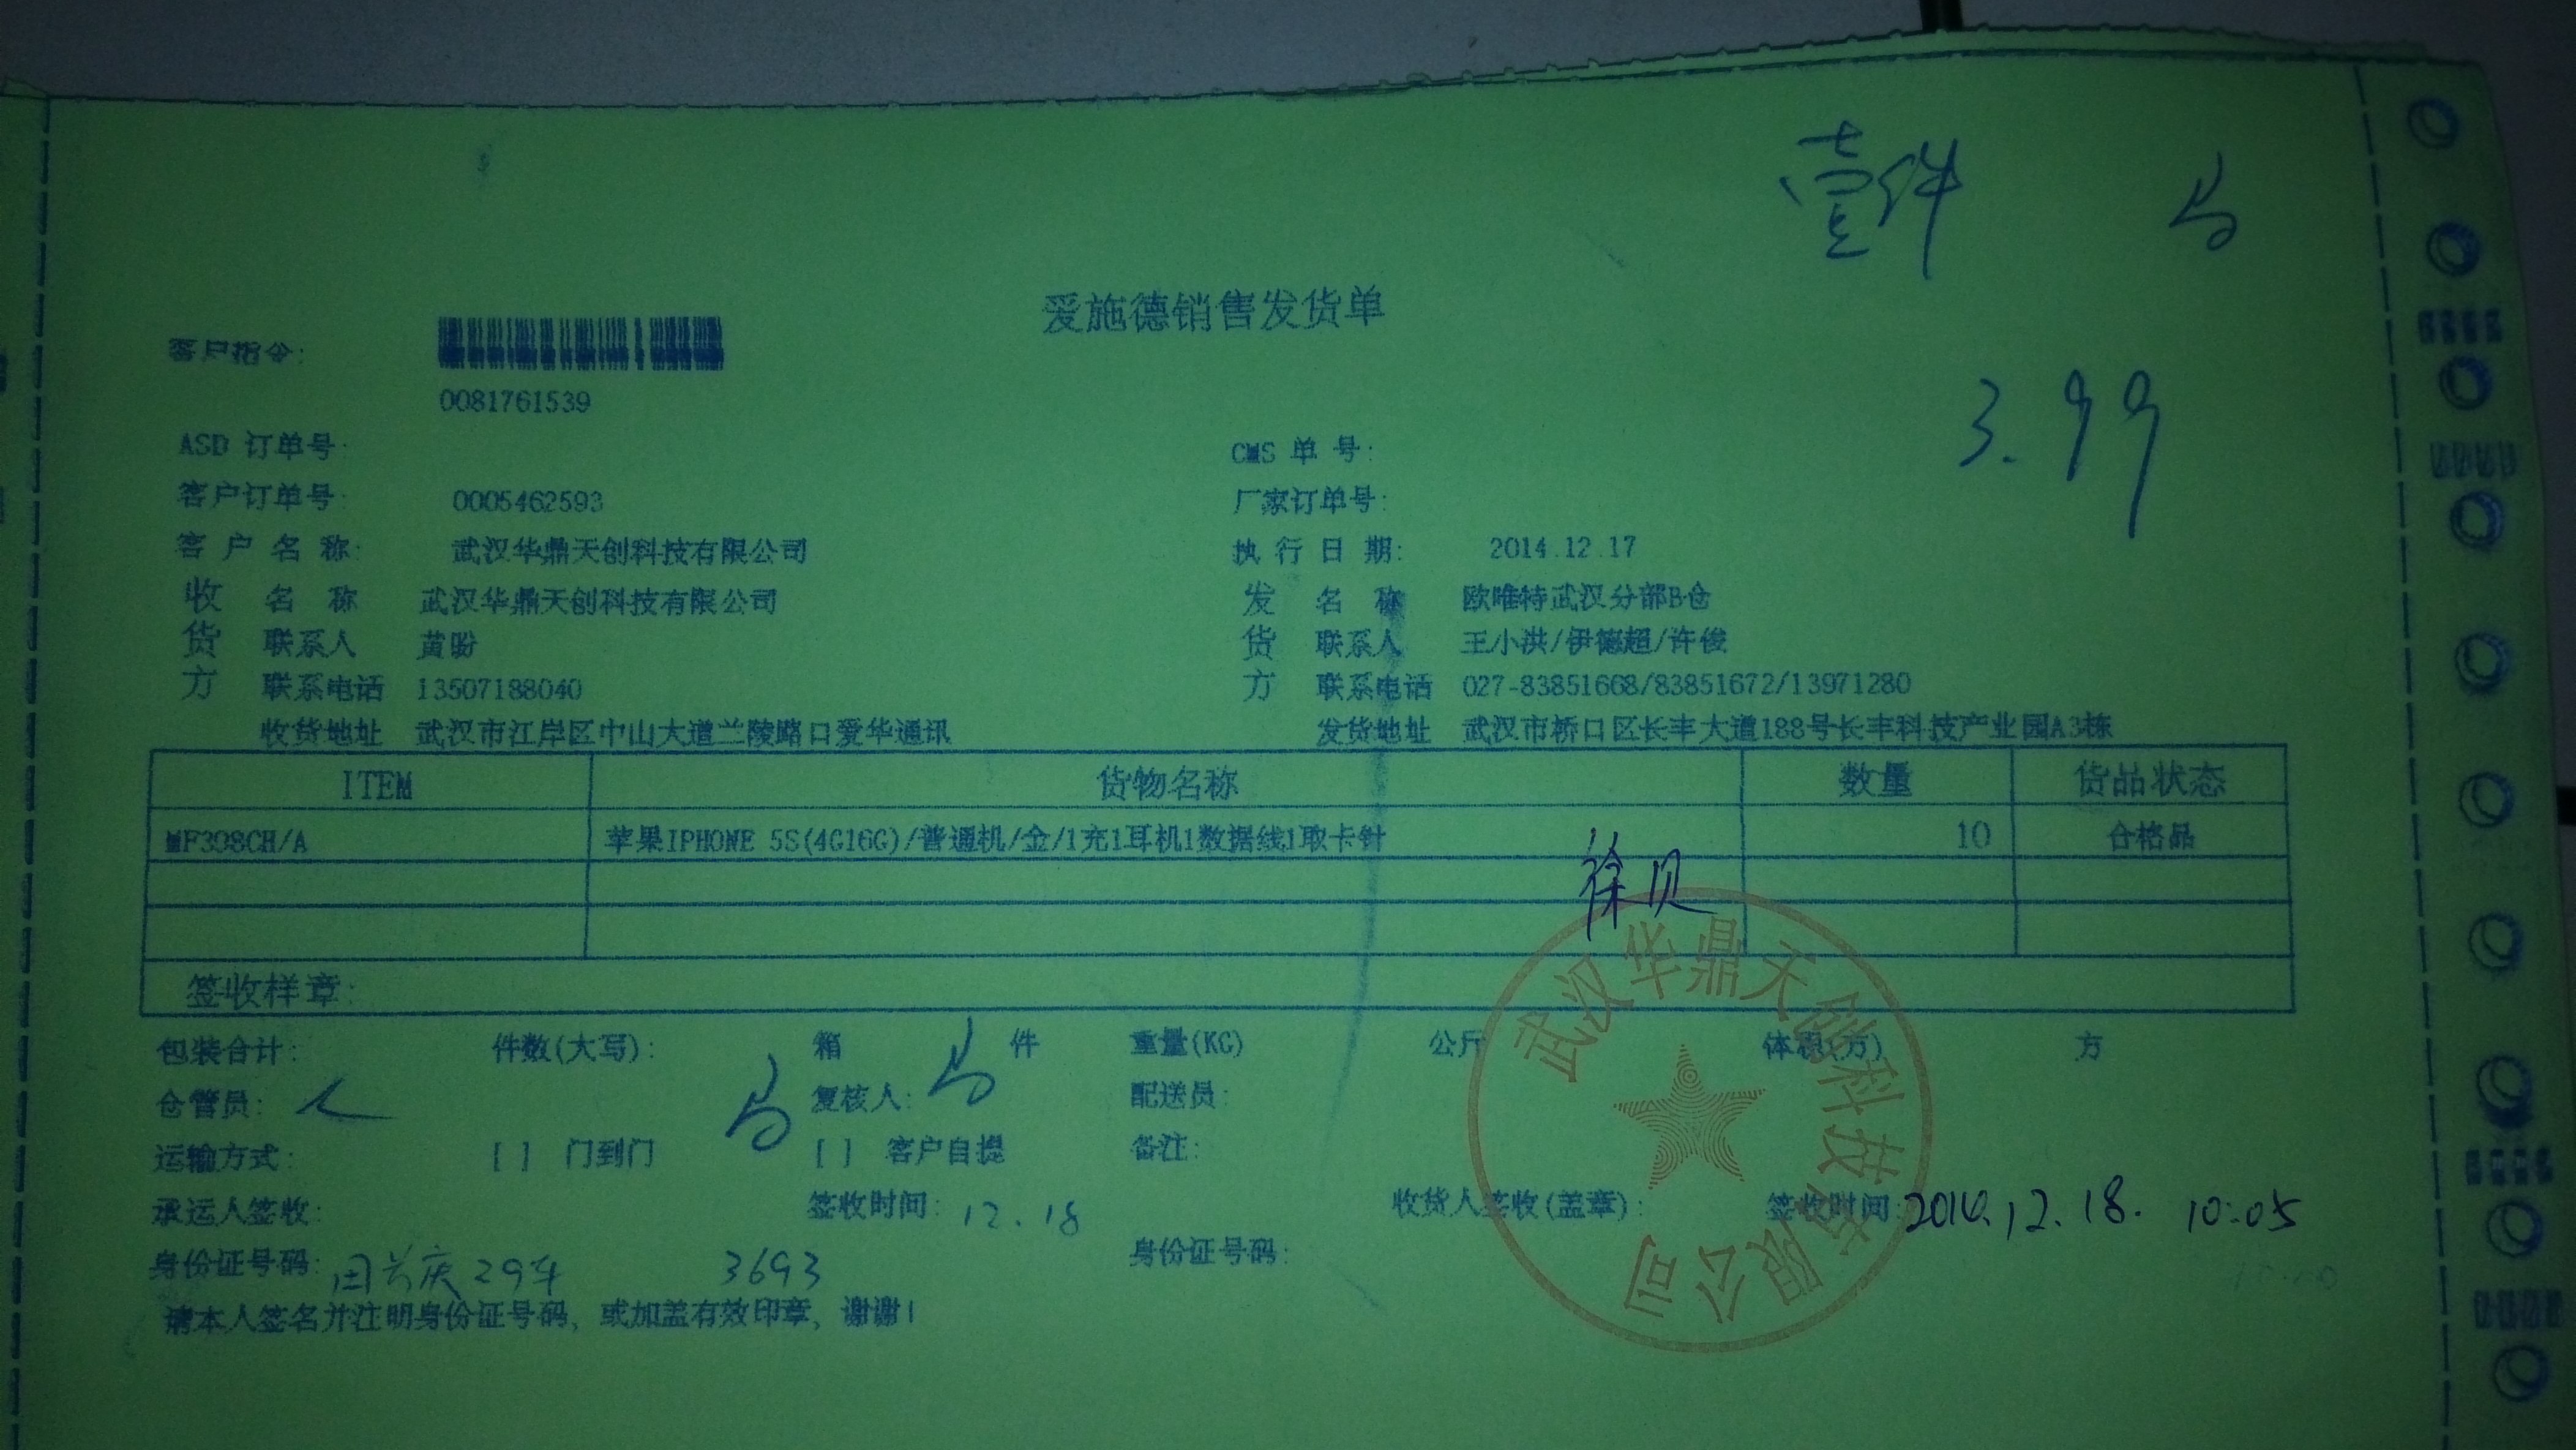 壹件
爱施德销售发货单
客户指令:
0081761539
3.99
ASD 订单号:
CMS 单 号:
客户订单号: 0005462593
厂家订单号:
客 户 名 称: 武汉华鼎天创科技有限公司
执 行 日 期: 2014.12.17
收货方 名 称 武汉华鼎天创科技有限公司
发货方 名 称 欧唯特武汉分部B仓
联系人 黄盼
联系人 王小洪/伊德超/许俊
联系电话 13507188040
联系电话 027-83851668/83851672/13971280
收货地址 武汉市江岸区中山大道兰陵路口爱华通讯
发货地址 武汉市桥口区长丰大道188号长丰科技产业园A3栋
ITEM 货物名称 数量 货品状态
MF398CH/A 苹果IPHONE 5S(4G16G)/普通机/金/1充1耳机1数据线1取卡针 10 合格品
徐贝
签收样章:
武汉华鼎天创科技有限公司
包装合计: 件数(大写): 箱 件 重量(KG) 公斤 体积(方) 方
仓管员: 复核人: 配送员:
运输方式: [ ] 门到门 [ ] 客户自提 备注:
承运人签收: 签收时间: 12.18 收货人签收(盖章): 签收时间: 2014.12.18. 10:05
身份证号码: 3693 身份证号码:
请本人签名并注明身份证号码, 或加盖有效印章, 谢谢!